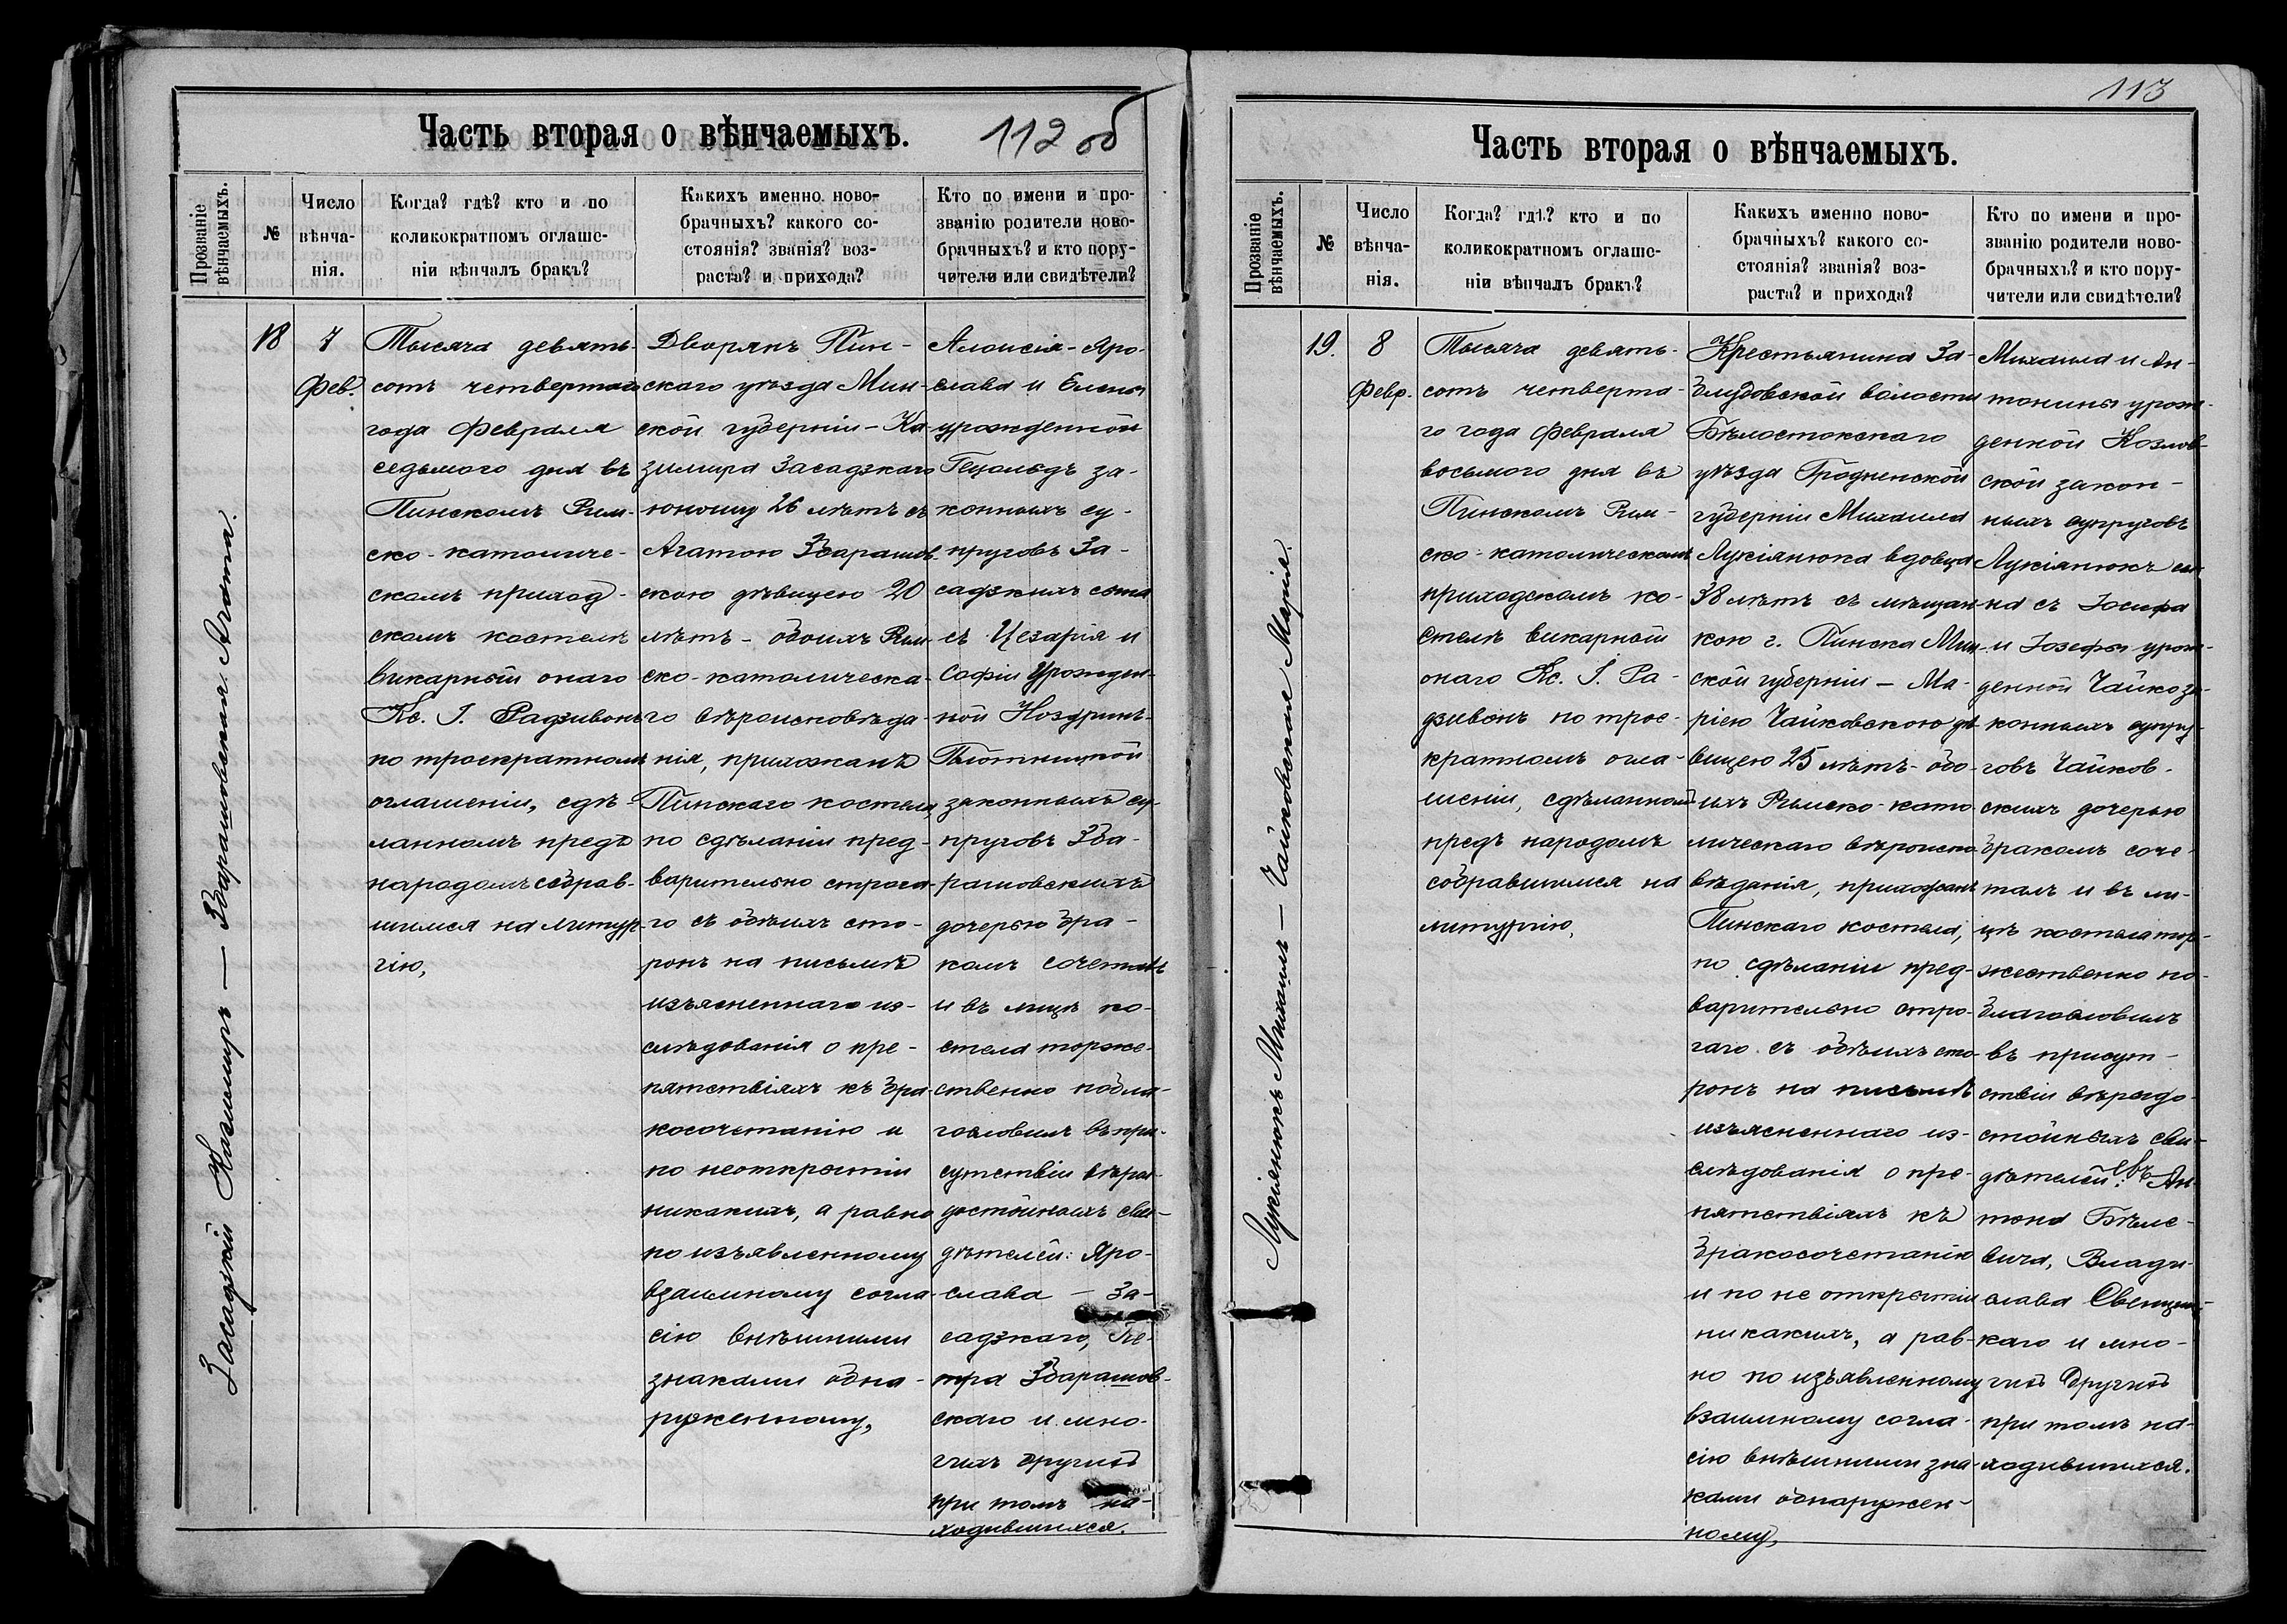 Часть вторая о вѣнчаемыхъ.
112 об
Прозваніе вѣнчаемыхъ.
№
Число вѣнча-
нія.
Когда? гдѣ? кто и по
коликократномъ оглаше-
ніи вѣнчалъ бракъ?
Каихъ именно ново-
брачныхъ? какого со-
стоянія? званія? воз-
раста? и прихода?
Кто по имени и про-
званію родители ново-
брачныхъ? и кто пору-
чители или свидѣтели?
Засадзкій Казимиръ — Збарашовская Агата.
18
7
Фев.
Тысяча девять-
сотъ четвертаго
года Февраля
седьмого дня въ
Пинскомъ Рим-
ско-католиче-
скомъ приход-
скомъ костелѣ
викарный онаго
Кс. І. Радзивонъ
по троекратномъ
оглашеніи, сдѣ-
ланномъ предъ
народомъ собрав-
шимся на литур-
гію,
Дворянъ Пин-
скаго уѣзда Мин-
ской губерніи – Ка-
зимира Засадзкаго
юношу 26 лѣтъ съ
Агатою Збарашов-
скою дѣвицею 20
лѣтъ – обоихъ Рим-
ско-католическа-
го вѣроисповѣда-
нія, прихожанъ
Пинскаго костела,
по сдѣланіи пред-
варительно строга-
го съ обѣихъ сто-
ронъ на письмѣ
изъясненнаго из-
слѣдованія о пре-
пятствіяхъ къ бра-
косочетанію и
по неоткрытіи
никакихъ, а равно
по изъявленному
взаимному согла-
сію внѣшними
знаками обна-
руженному,
Алоисія-Яро-
слава и Елены
урожденной
Гецольдъ за-
конныхъ су-
пруговъ За-
садзкихъ сына
съ Цезарія и
Софіи Урожден-
ной
законныхъ су-
пруговъ Зба-
рашовскихъ
дочерью бра-
комъ сочеталъ
и въ лицѣ ко-
стела торже-
ственно побла-
гословилъ въ при-
сутствіи вѣро-
достойныхъ сви-
дѣтелей: Яро-
слава – За-
садзкаго, Пе-
тра Збарашов-
скаго и мно-
гихъ другихъ
при томъ на-
ходившихся.
113
Часть вторая о вѣнчаемыхъ.
Прозваніе вѣнчаемыхъ.
№
Число вѣнча-
нія.
Когда? гдѣ? кто и по
коликократномъ оглаше-
ніи вѣнчалъ бракъ?
Какихъ именно ново-
брачныхъ? какого со-
стоянія? званія? воз-
раста? и прихода?
Кто по имени и про-
званію родители ново-
брачныхъ? и кто пору-
чители или свидѣтели?
Лукіянюкъ Михаилъ — Чайковская Марія.
19.
8
Февр.
Тысяча девять-
сотъ четверта-
го года Февраля
восьмого дня въ
Пинскомъ Рим-
ско-католическомъ
приходскомъ ко-
стелѣ викарный
онаго Кс. І. Ра-
дзивонъ по трое-
кратномъ огла-
шеніи, сдѣланномъ
предъ народомъ
собравшимся на
литургію,
Крестьянина За-
блудовской волости
Бѣлостокскаго
уѣзда Гродненской
губерніи Михаила
Лукіянюка вдовца
38 лѣтъ съ мѣщан-
кою г. Пинска Мин-
ской губерніи – Ма-
ріею Чайковскою дѣ-
вицею 25 лѣтъ – обо-
ихъ Римско-като-
лическаго вѣроиспо-
вѣданія, прихожанъ
Пинскаго костела,
по сдѣланіи пред-
варительно стро-
гаго съ обѣихъ сто-
ронъ на письмѣ
изъясненнаго из-
слѣдованія о пре-
пятствіяхъ къ
бракосочетанію
и по не открытіи
никакихъ, а рав-
но по изъявленному
взаимному согла-
сію внѣшними зна-
ками обнаружен-
ному,
Михаила и Ан-
тонины урож-
денной Козлов-
ской закон-
ныхъ супруговъ
Лукіянюкъ сы-
на съ Іосифа
и Іозефы урож-
денной Чайко за-
конныхъ супру-
говъ Чайков-
скихъ дочерью
бракомъ соче-
талъ и въ ли-
цѣ костела тор-
жественно по-
благословилъ
въ присут-
ствіи вѣродо-
стойныхъ сви-
дѣтелей: Ан-
тона Бѣле-
вича, Влади-
слава Свенциц-
каго и мно-
гихъ другихъ
при томъ на-
ходившихся.